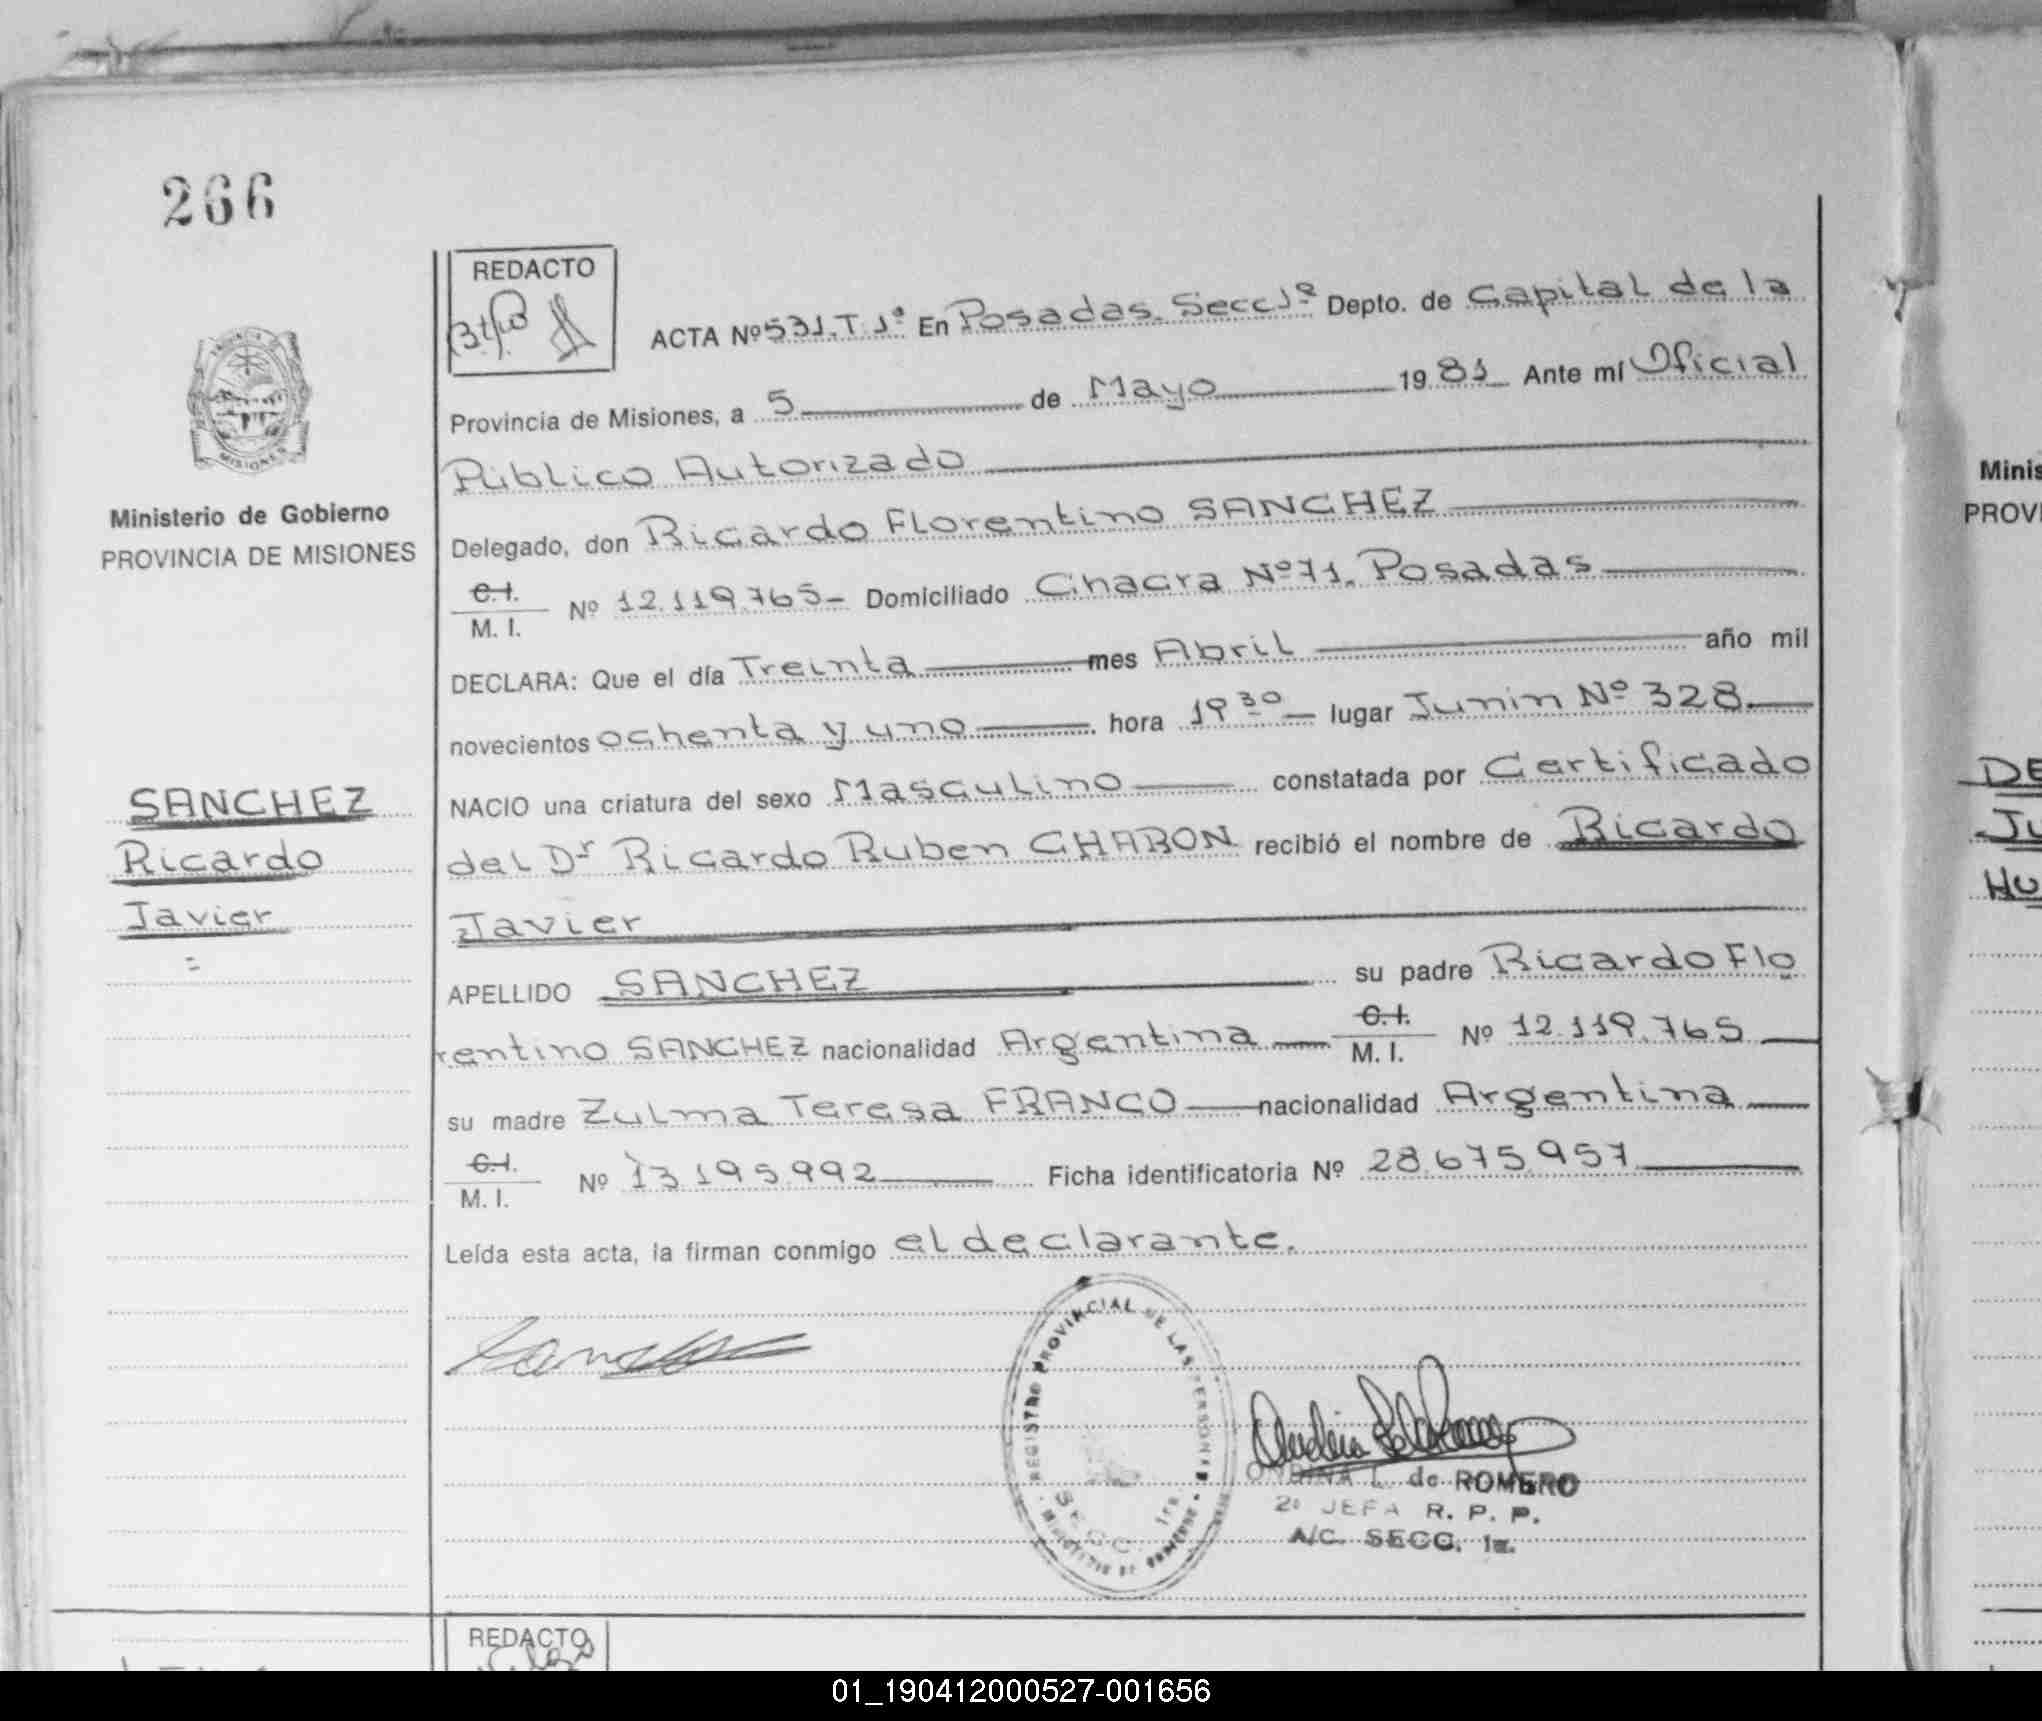 266
REDACTO
ACTA Nº 531. T. 1º En Posadas. Secc 1º Depto. de Capital de la
Provincia de Misiones, a 5 de Mayo 1981 Ante mí Oficial
Público Autorizado
Ministerio de Gobierno
PROVINCIA DE MISIONES
Delegado, don Ricardo Florentino SANCHEZ
C.I.
M. I. Nº 12.119.765 Domiciliado Chacra Nº 71. Posadas
DECLARA: Que el día Treinta mes Abril año mil
novecientos ochenta y uno hora 19 30 lugar Junin Nº 328
NACIO una criatura del sexo Masculino constatada por Certificado
SANCHEZ
Ricardo
Javier
del Dr Ricardo Ruben CHABON recibió el nombre de Ricardo
Javier
APELLIDO SANCHEZ su padre Ricardo Flo
rentino SANCHEZ nacionalidad Argentina C.I. M. I. Nº 12.119.765
su madre Zulma Teresa FRANCO nacionalidad Argentina
C.I.
M. I. Nº 13.195.992 Ficha identificatoria Nº 28.675.957
Leída esta acta, la firman conmigo el declarante.
REGISTRO PROVINCIAL DE LAS PERSONAS
SECC. 1ra
MINISTERIO DE GOBIERNO
ONDINA L. de ROMERO
2º JEFA R. P. P.
A/C. SECC. 1a.
REDACTO
MISIONES
Minis
PROVI
DE
JU
HU
01_190412000527-001656